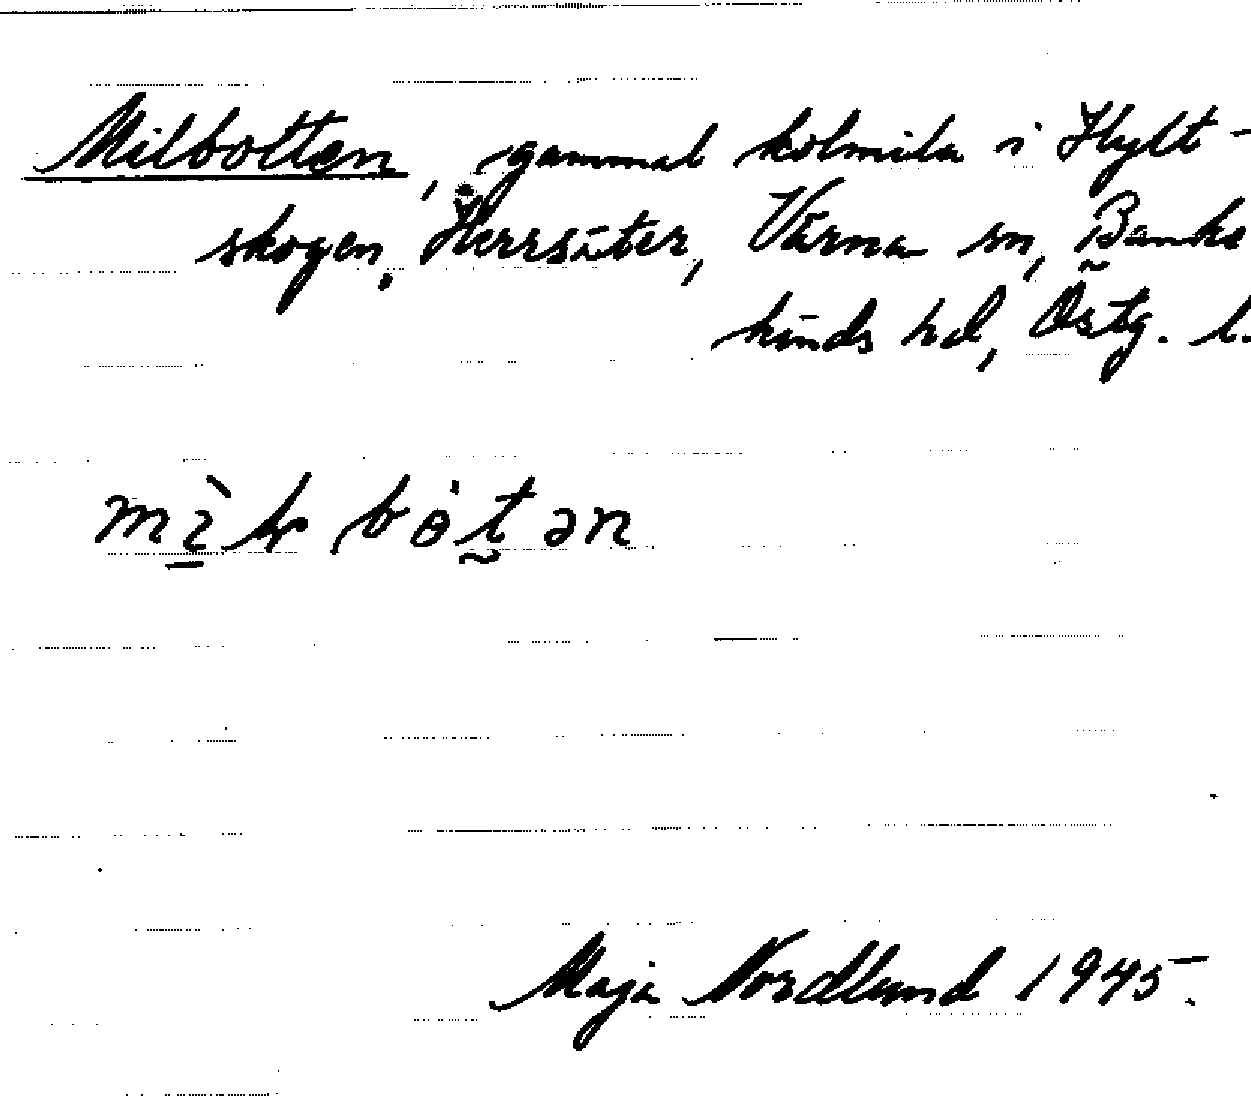 Milbotten, gammal kolmila i Hylt-
skogen. Herrsäter, Värna sn, Banke
kinds hd, Östg. l.
Maja Nordlund 1945.